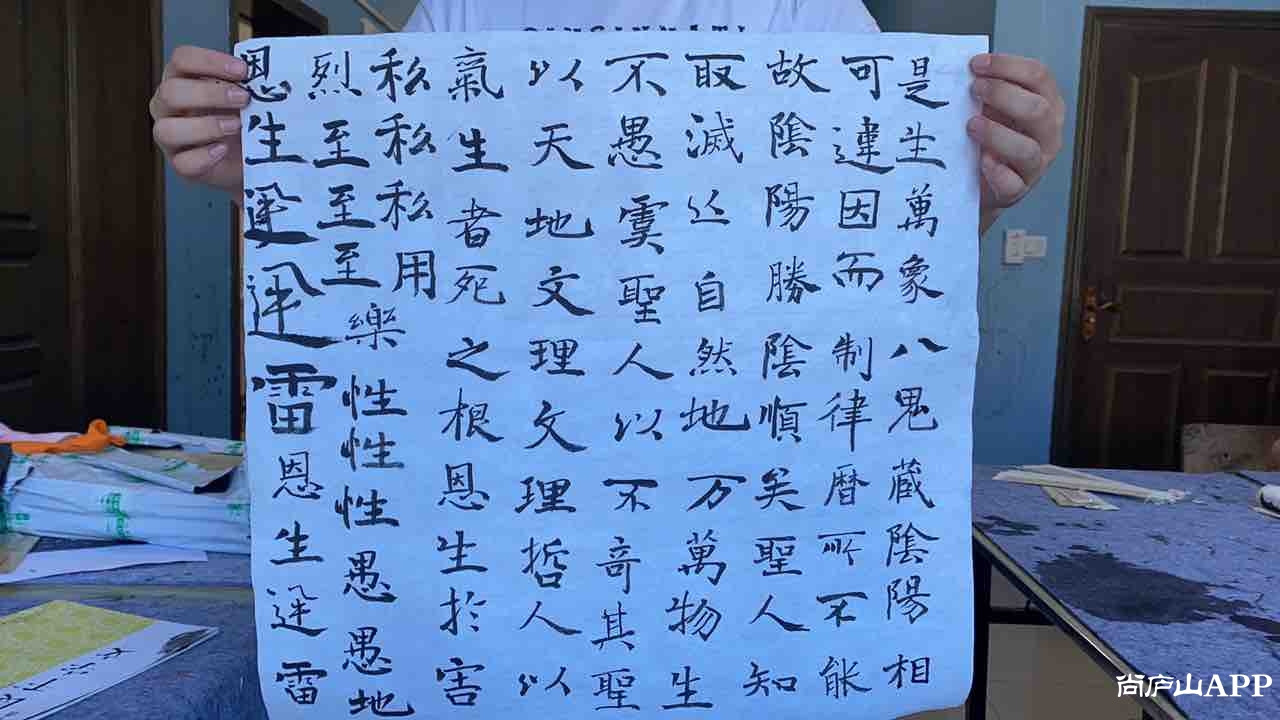 是生萬象八鬼藏陰陽相
可違因而制律暦所不能
故陰陽勝陰順矣聖人知
取滅自然地万萬物生
不愚虞聖人以不奇其聖
以天地文理文理哲人以
氣生者死之根恩生於害
私私私用
烈至至至樂性性性愚愚地
恩生迅迅雷恩生迅雷
尚庐山APP